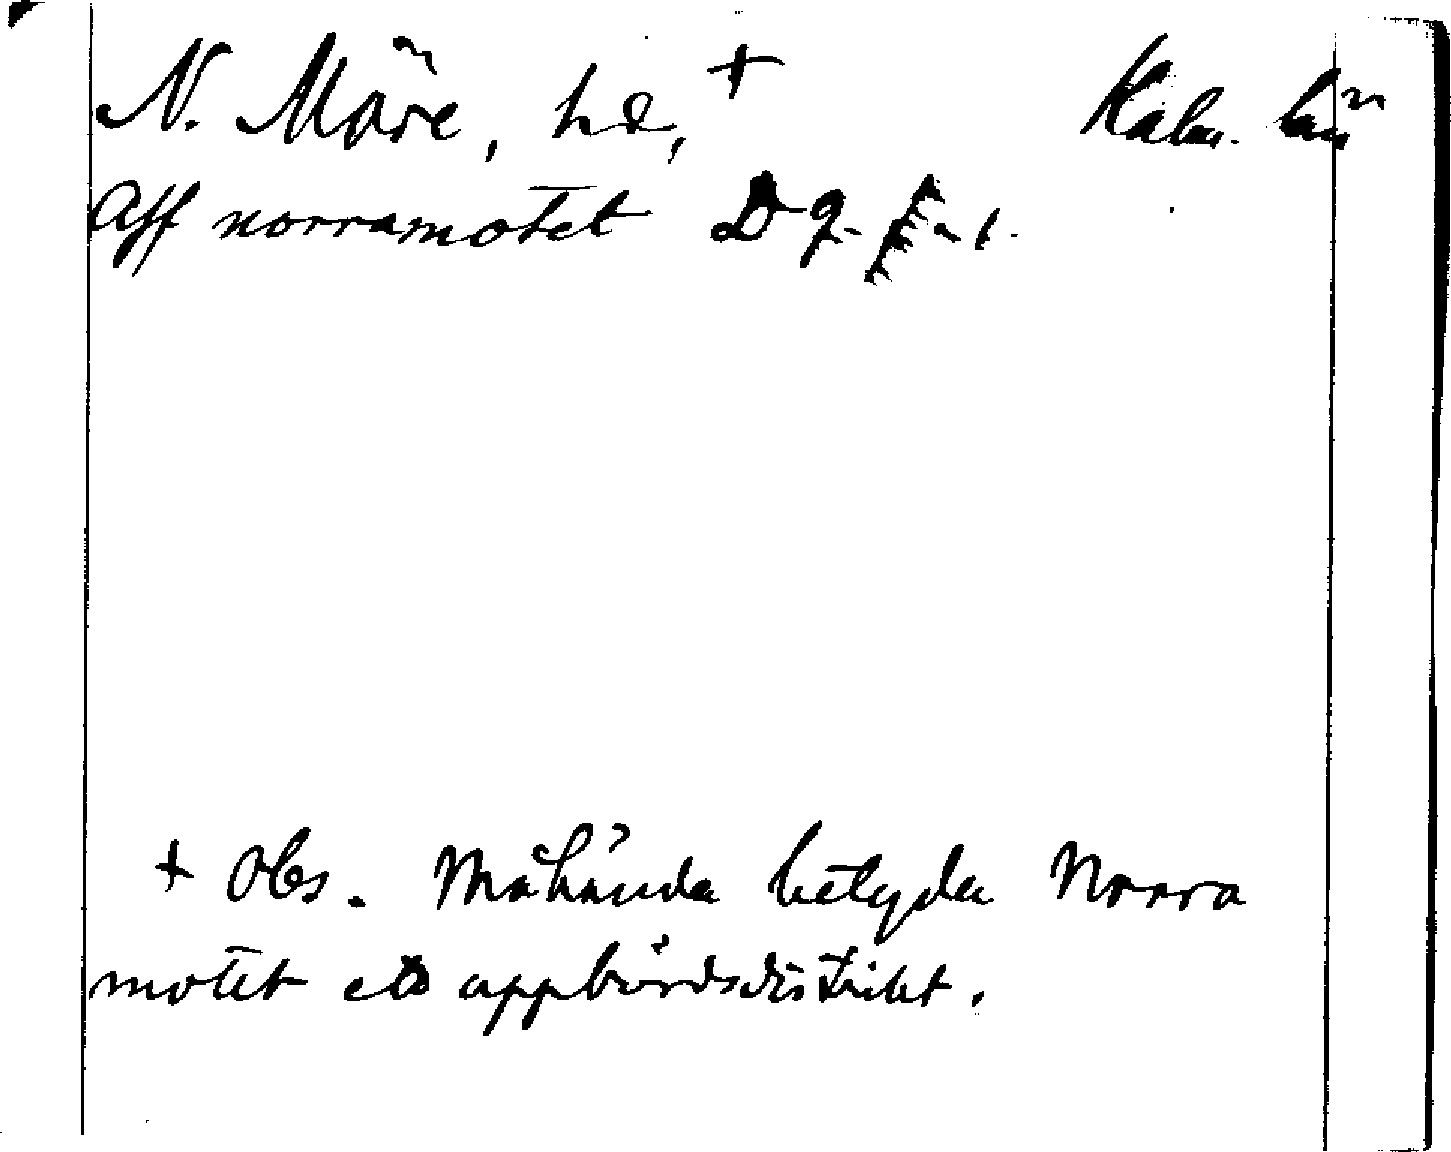 N. Möre, hd, + Kalm. län
Aff norramotet D 9.
+ Obs. Måhända betyda Norra
motet ett uppbördsdistrikt.